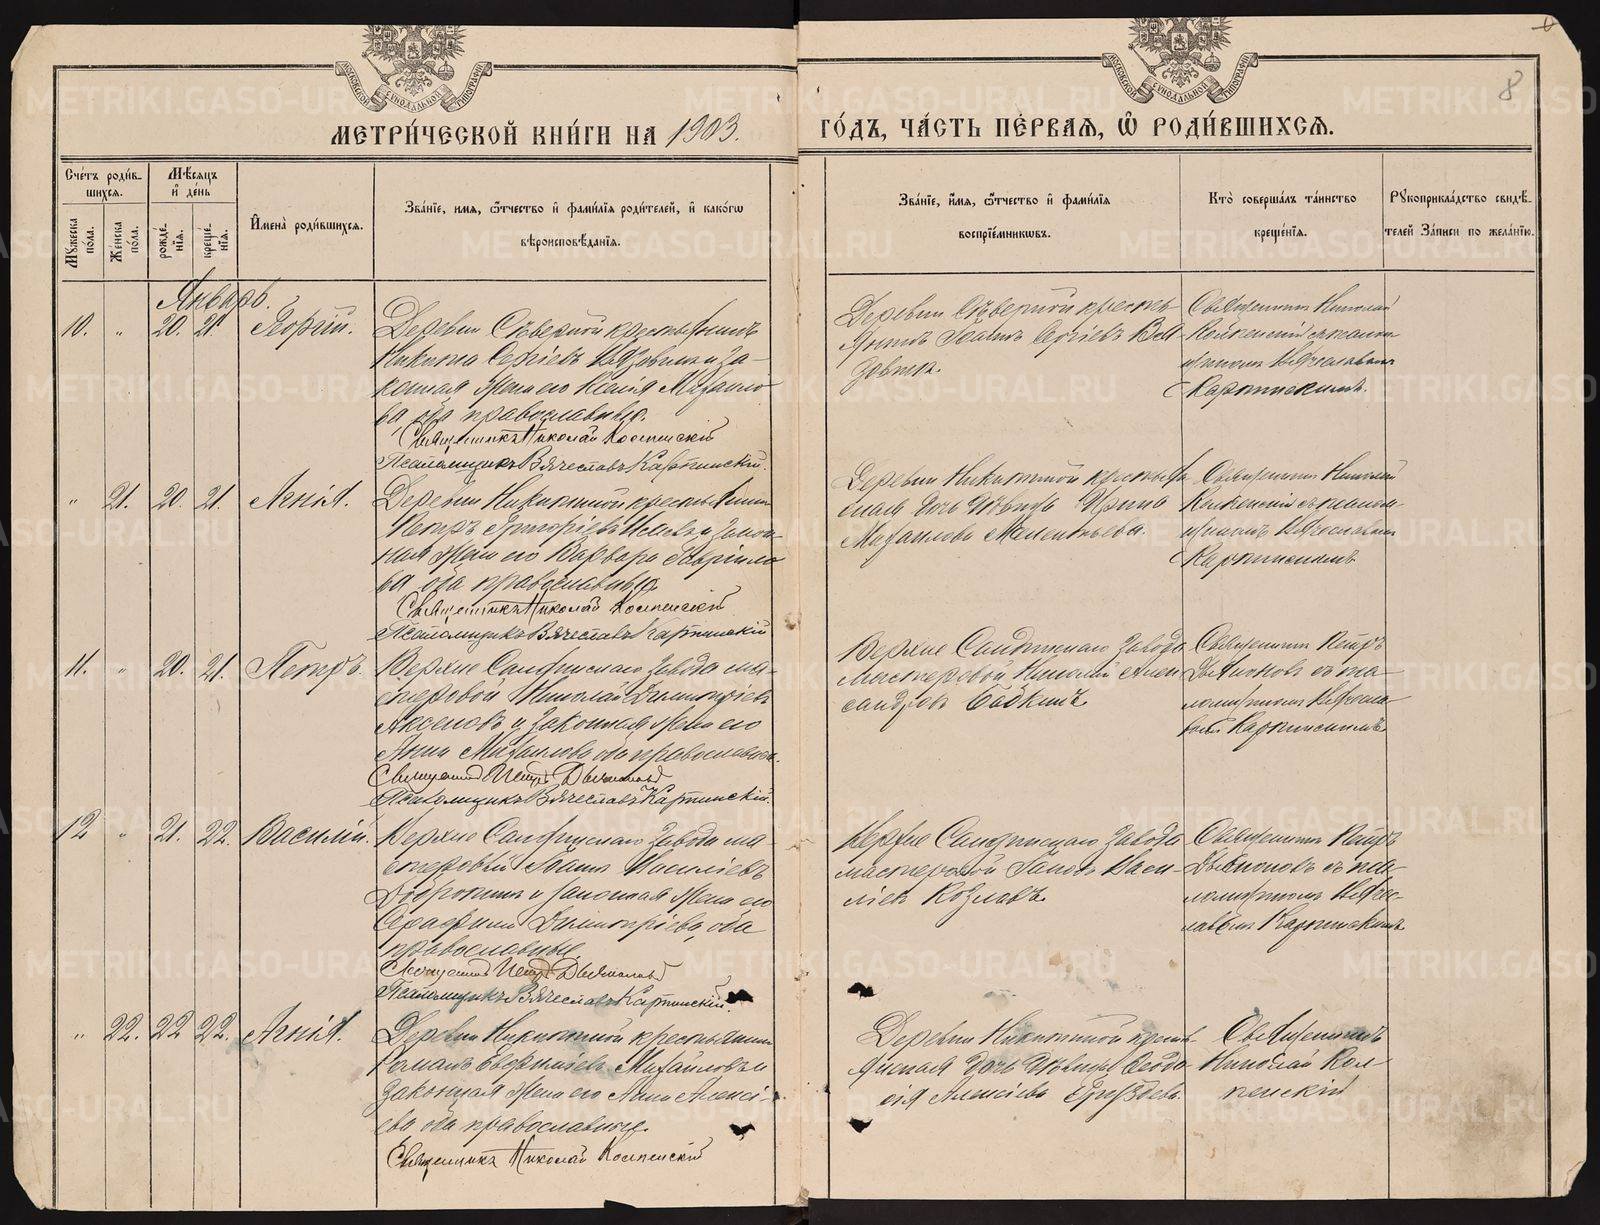 8
МЕТРИ́ЧЕСКОЙ КНИ́ГИ НА 1903. ГО́ДЪ, ЧА́СТЬ ПЕ́РВАЯ, Ѡ РОДИ́ВШИХСЯ.
Сче́тъ роди́вшихся.
Мѣ́сяцъ и де́нь
Мꙋ́жеска по́ла.
Же́нска по́ла.
рожде́нїѧ.
креще́нїѧ.
И҆мена̀ роди́вшихсѧ.
Зва́нїе, и҆́мѧ, ѻ҆́тчество и҆ фами́лїѧ роди́телей, и҆ како́гѡ
вѣроисповѣ́данїѧ.
Зва́нїе, и҆́мѧ, ѻ҆́тчество и҆ фами́лїѧ
воспрїе́мникѡвъ.
Кто̀ соверша́лъ та́инство
креще́нїѧ.
Рꙋкоприкла́дство свидѣ́-
телей За́писи по жела́нїю.
Январь.
10. „ 20. 21. Георгій.
Деревни Сѣверной крестьянинъ
Никита Сергіевъ и за-
конная жена его Ксенія Михаило-
ва оба православные.
Священникъ Николай
Псаломщикъ Вячеславъ Карпинскій.
Деревни Сѣверной кресть-
янинъ Іоаннъ Сергіевъ
Священникъ Николай
съ псалом-
щикомъ Вячеславомъ
Карпинскимъ.
„ 21. 20. 21. Агнія.
Деревни Никитиной крестьянинъ
Петръ Григоріевъ и закон-
ная жена его Варвара Гавріило-
ва оба православные
Священникъ Николай
Псаломщикъ Вячеславъ Карпинскій
Деревни Никитиной крестья-
нская дочь дѣвица Ирина
Михаилова Мелентьева.
Священникъ Николай
съ псалом-
щикомъ Вячеславомъ
Карпинскимъ
11. „ 20. 21. Петръ.
Верхне Салдинскаго завода ма-
стеровой Николай Димитріевъ
Аксеновъ и законная жена его
Анна Михаилова оба православные.
Священникъ Петръ
Псаломщикъ Вячеславъ Карпинскій.
Верхне Салдинскаго завода
мастеровой Николай Алек-
сандровъ Бабкинъ.
Священникъ Петръ
съ пса-
ломщикомъ Вячесла-
вомъ Карпинскимъ
12 „ 21. 22. Василій.
Верхне Салдинскаго завода ма-
стеровой Іоаннъ Василіевъ
и законная жена его
Серафима Димитріева, оба
православные
Священникъ Петръ
Псаломщикъ Вячеславъ Карпинскій.
Верхне Салдинскаго завода
мастеровой Васи-
ліевъ Козловъ.
Священникъ Петръ
съ пса-
ломщикомъ Вячес-
лавомъ Карпинскимъ
„ 22. 22 22. Агнія.
Деревни Никитиной крестьянинъ
Романъ Михайловъ и
законная жена его Анна Алексі-
ева оба православные.
Священникъ Николай
Деревни Никитиной кресть-
янская дочь дѣвица Ѳеодо-
сія Алексіева
Священникъ
Николай
METRIKI.GASO-URAL.RU